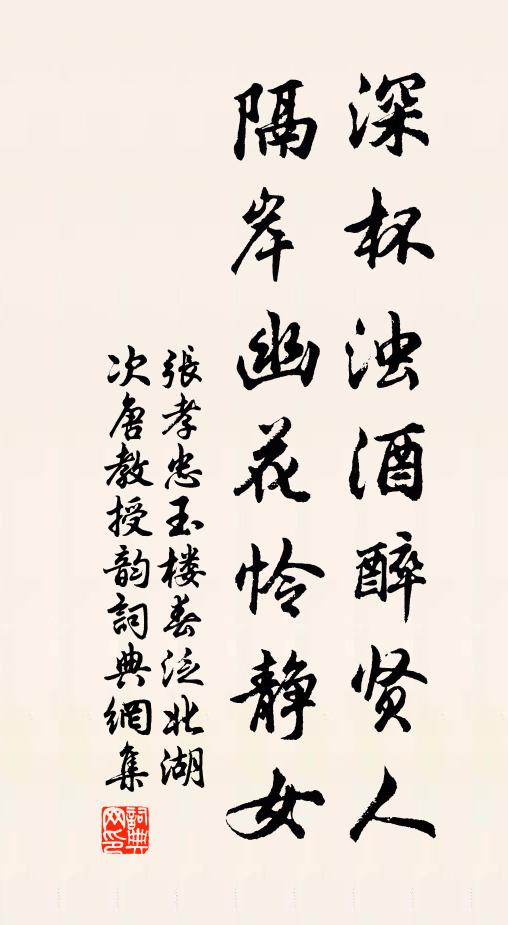 深杯浊酒醉贤人
隔岸幽花怜静女
張孝忠玉楼春泛北湖
次唐教授韵詞典網集
詞典
网印